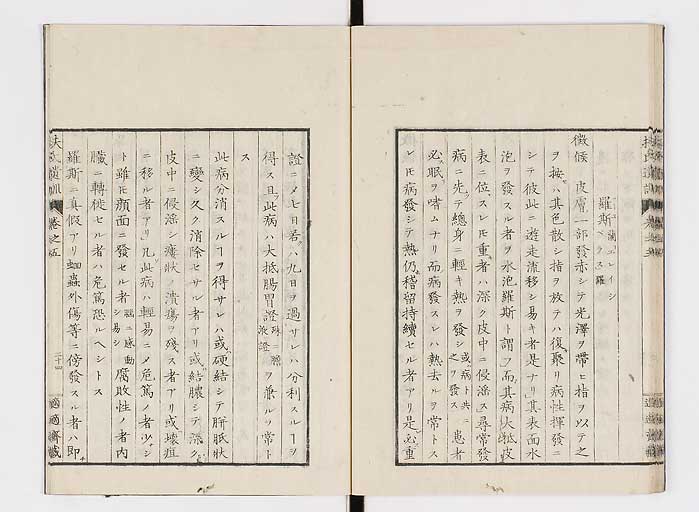 羅斯
徴候 皮膚一部發赤シテ光澤ヲ帶ヒ指ヲ以テ之
ヲ按ハ其色散シ指ヲ放テハ復聚リ病性揮發ニ
シテ彼此ニ遊走流移シ易キ者是ナリ其表面水
泡ヲ發スル者ヲ水泡羅斯ト謂フ而其病大抵皮
表ニ位スレモ重者ハ深ク皮中ニ侵淫ス尋常發
病ニ先テ總身ニ輕キ熱ヲ發シ或ハ病ト共ニ之ヲ發ス患者
必眠ヲ嗜ムナリ而病發スレハ熱去ルヲ常トス
レモ病發シテ熱仍稽留持續セル者アリ是必重
證ニメ七日若ハ九日ヲ過サレハ分利スルヿヲ
得ス且此病ハ大抵腸胃證ヲ兼ルヲ常ト
ス
此病分消スルヿヲ得サレハ或硬結シテ胼胝狀
ニ變シ久ク消除セサル者アリ或結膿シテ深ク
皮中ニ侵淫シ瘻狀ノ潰瘍ヲ殘ス者アリ或壞疽
ニ移ル者アリ凡此病ハ輕易ニメ危篤ノ者少シ
ト雖モ顔面ニ發セル者腦ニ感動シ易シ腐敗性ノ者内
臟ニ轉徙セル者ハ危篤恐ルヘシトス
羅斯ニ真假アリ蛔蟲外傷等ニ傍發スル者ハ即
扶氏遺訓 卷之五 三十四